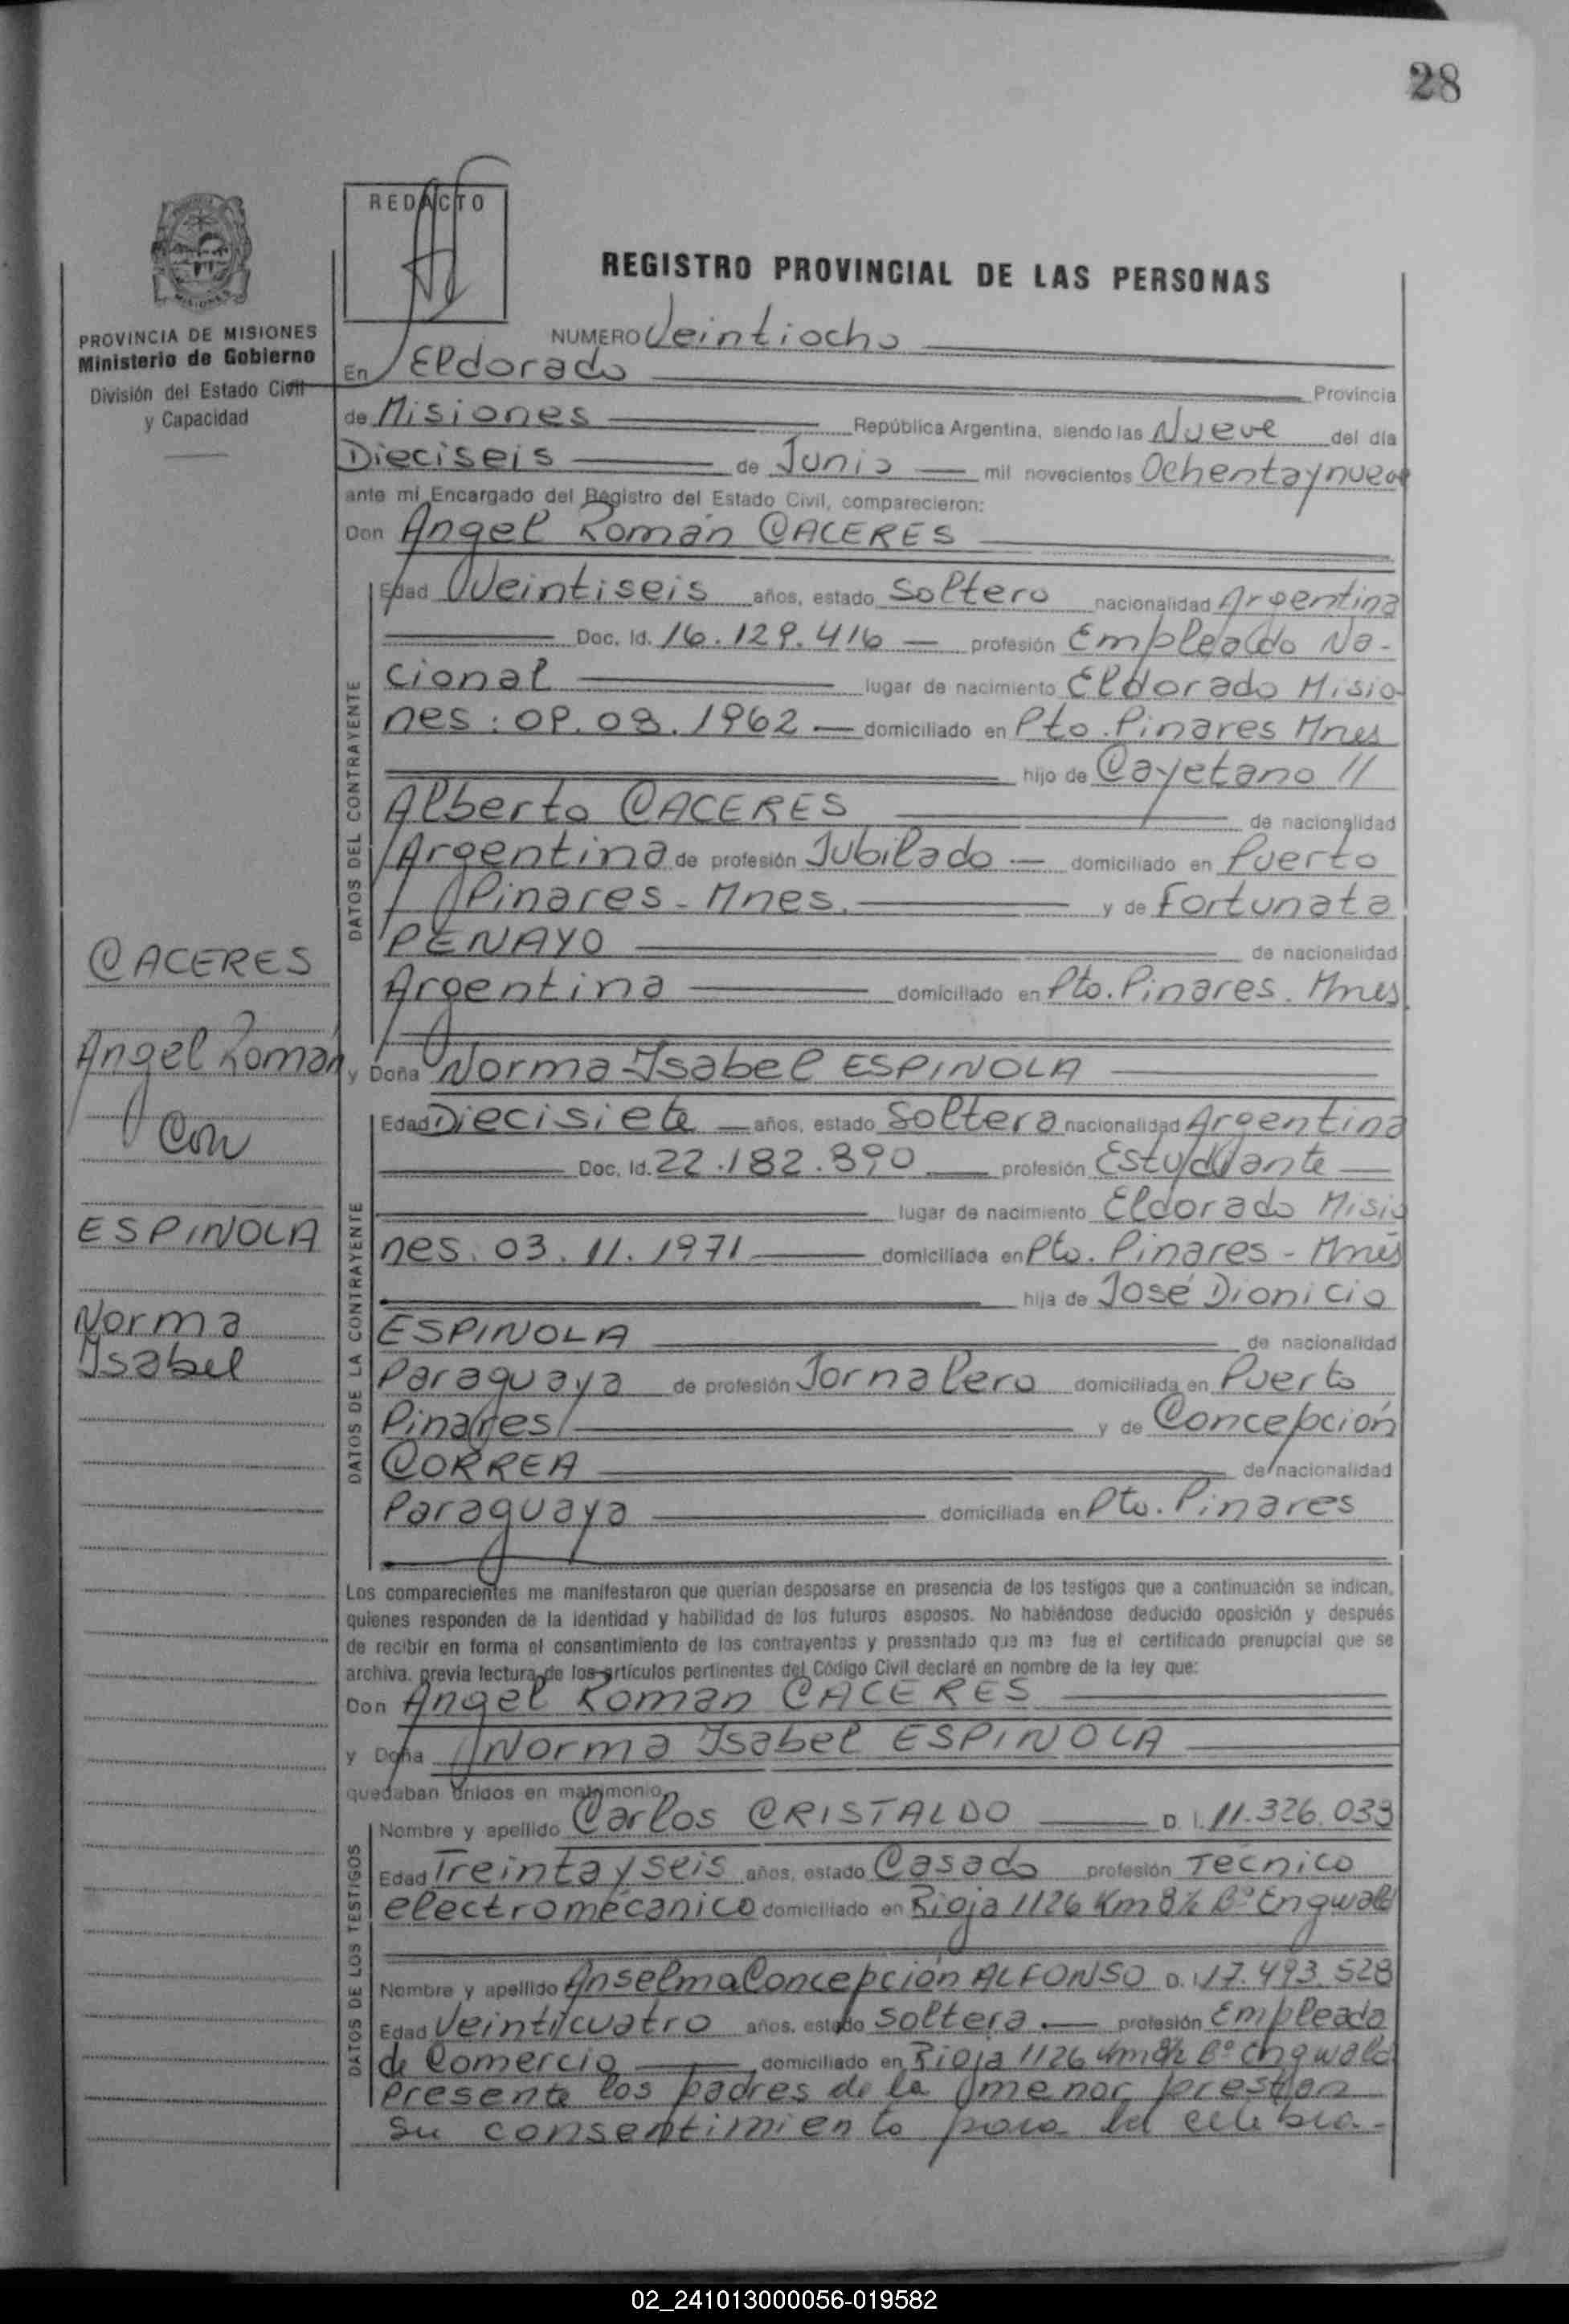 28
REDACTO
REGISTRO PROVINCIAL DE LAS PERSONAS
PROVINCIA DE MISIONES
Ministerio de Gobierno
División del Estado Civil
y Capacidad
NUMERO Veintiocho
En Eldorado Provincia
de Misiones República Argentina, siendo las Nueve del día
Dieciseis de Junio mil novecientos Ochentaynueve
ante mi Encargado del Registro del Estado Civil, comparecieron:
Don Angel Román CACERES
DATOS DEL CONTRAYENTE
Edad Veintiseis años, estado Soltero nacionalidad Argentina
Doc. Id. 16.129.416 profesión Empleado Na-
cional lugar de nacimiento Eldorado Misio
nes: 09.08.1962 domiciliado en Pto. Pinares Mnes
hijo de Cayetano //
Alberto CACERES de nacionalidad
Argentina de profesión Jubilado domiciliado en Puerto
Pinares - Mnes. y de Fortunata
PENAYO de nacionalidad
Argentina domiciliado en Pto. Pinares. Mnes
CACERES
Angel Román
Con
ESPINOLA
Norma
Isabel
y Doña Norma Isabel ESPINOLA
DATOS DE LA CONTRAYENTE
Edad Diecisiete años, estado Soltera nacionalidad Argentina
Doc. Id. 22.182.390 profesión Estudiante
lugar de nacimiento Eldorado Misio
nes. 03.11.1971 domiciliada en Pto. Pinares - Mnes
hija de José Dionicio
ESPINOLA de nacionalidad
Paraguaya de profesión Jornalero domiciliada en Puerto
Pinares y de Concepción
CORREA de nacionalidad
Paraguaya domiciliada en Pto. Pinares
Los comparecientes me manifestaron que querían desposarse en presencia de los testigos que a continuación se indican,
quienes responden de la identidad y habilidad de los futuros esposos. No habiéndose deducido oposición y después
de recibir en forma el consentimiento de los contrayentes y presentado que me fue el certificado prenupcial que se
archiva. previa lectura de los artículos pertinentes del Código Civil declaré en nombre de la ley que:
Don Angel Roman CACERES
y Doña Norma Isabel ESPINOLA
quedaban unidos en matrimonio
DATOS DE LOS TESTIGOS
Nombre y apellido Carlos CRISTALDO D. I. 11.326.033
Edad Treintayseis años, estado Casado profesión Tecnico
electromécanico domiciliado en Rioja 1126 Km 8½ Bº Engwald
Nombre y apellido Anselma Concepción ALFONSO D. I 17.493.528
Edad Veinticuatro años, estado Soltera profesión Empleada
de Comercio domiciliado en Rioja 1126 Km 8½ Bº Engwald
Presente los padres de la menor prestan
su consentimiento para la celebra-
02_241013000056-019582